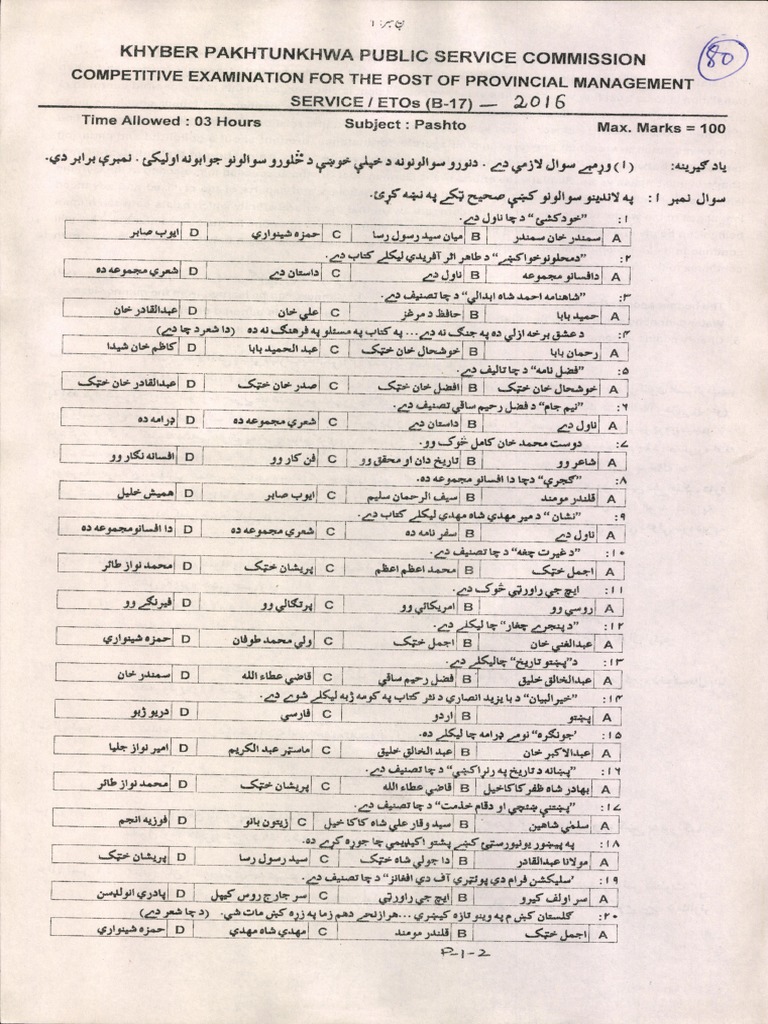 80
KHYBER PAKHTUNKHWA PUBLIC SERVICE COMMISSION
COMPETITIVE EXAMINATION FOR THE POST OF PROVINCIAL MANAGEMENT
SERVICE / ETOs (B-17) — 2016
Time Allowed : 03 Hours Subject : Pashto Max. Marks = 100
یاد گیرینه: (۱) وړمبے سوال لازمي دے ۔ دنورو سوالونونه د خپلې خوښې د څلورو سوالونو جوابونه اولیکئ ۔ نمبرې برابر دي.
سوال نمبر ۱: په لاندینو سوالونو کښې صحیح ټکے په نښه کړئ.
۱: ”خودکشئ“ د چا ناول دے.
A سمندر خان سمندر B میاں سید رسول رسا C حمزه شینواري D ایوب صابر
۲: ”دمحلونو خوا کښے“ د طاهر اثر آفریدي لیکلے کتاب دے.
A دافسانو مجموعه B ناول دے C داستان دے D شعري مجموعه ده
۳: ”شاهنامه احمد شاه ابدالي“ د چا تصنیف دے.
A حمید بابا B حافظ د مرغز C علي خان D عبدالقادر خان
۴: د عشق برخه ازلي ده په جنگ نه دے... په کتاب په مسئلو په فرهنگ نه ده (دا شعر د چا دے)
A رحمان بابا B خوشحال خان خټک C عبد الحمید بابا D کاظم خان شیدا
۵: ”فضل نامه“ د چا تالیف دے.
A خوشحال خان خټک B افضل خان خټک C صدر خان خټک D عبدالقادر خان خټک
۶: ”نیم جام“ د فضل رحیم ساقي تصنیف دے.
A ناول دے B داستان دے C شعري مجموعه ده D ډرامه ده
۷: دوست محمد خان کامل څوک وو.
A شاعر وو B تاریخ دان او محقق وو C فن کار وو D افسانه نگار وو
۸: ”گجرې“ دچا دا افسانو مجموعه ده.
A قلندر مومند B سیف الرحمان سلیم C ایوب صابر D همیش خلیل
۹: ”نشان“ د میر مهدي شاه مهدي لیکلے کتاب دے.
A ناول دے B سفر نامه ده C شعري مجموعه ده D دا افسانو مجموعه ده
۱۰: ”د غیرت چغه“ د چا تصنیف دے.
A اجمل خټک B محمد اعظم اعظم C پریشان خټک D محمد نواز طائر
۱۱: ایچ جي راورټي څوک دے.
A روسي وو B امریکائي وو C پرتگالي وو D فیرنگے وو
۱۲: ”د پنجرې چغار“ چا لیکلے دے.
A عبدالغني خان B اجمل خټک C ولي محمد طوفان D حمزه شینواري
۱۳: د”پښتو تاریخ“ چالیکلے دے.
A عبدالخالق خلیق B فضل رحیم ساقي C قاضي عطاء الله D سمندر خان
۱۴: ”خیرالبیان“ د بایزید انصاري د نثر کتاب په کومه ژبه لیکلے شوے دے.
A پښتو B اردو C فارسي D دریو ژبو
۱۵: ’جونگړه“ نومے ډرامه چا لیکلے ده.
A عبدالاکبر خان B عبد الخالق خلیق C ماسټر عبد الکریم D امیر نواز جلیا
۱۶: ”پښتانه د تاریخ په رنړا کښې“ د چا تصنیف دے.
A بهادر شاه ظفر کاکاخیل B قاضي عطاء الله C پریشان خټک D محمد نواز طائر
۱۷: ”پښتنې ښځې او دقام خدمت“ د چا تصنیف دے.
A سلمي شاهین B سید وقار علي شاه کاکا خیل C زیتون بانو D فوزیه انجم
۱۸: په پیښور یونیورسټئ کښے پښتو اکیډیمي چا جوړه کړے ده.
A مولانا عبدالقادر B دا جولي شاه خټک C سید رسول رسا D پریشان خټک
۱۹: ’سلیکشن فرام دي پوئټري آف دي افغانز“ د چا تصنیف دے.
A سر اولف کیرو B ایچ جي راورټي C سر جارج روس کیپل D پادري انولډسن
۲۰: گلستان کښ م په وینو تازه کیښري ...هرازنحے دهم زما په زړه کښ مات شي. (د چا شعر دے)
A اجمل خټک B قلندر مومند C مهدي شاه مهدي D حمزه شینواري
P-1-2